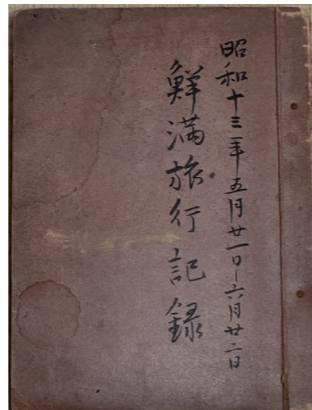 昭和十三年五月廿一日-六月廿二日
鮮満旅行記録